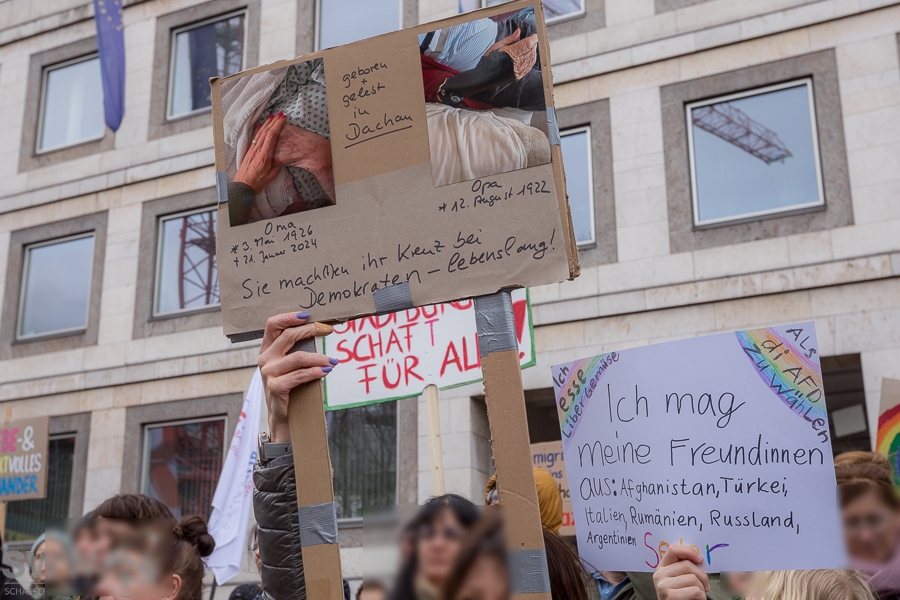 geboren
+
gelebt
in
Dachau
Oma
* 3. Mai 1926
+ 21. Januar 2024
Opa
* 12. August 1922
Sie mach(t)en ihr Kreuz bei
Demokraten - lebenslang!
SCHAFT
FÜR ALLE!
Ich
esse
lieber Gemüse
Als
di AFD
zu wählen
Ich mag
meine Freundinnen
aus: Afghanistan, Türkei,
Italien, Rumänien, Russland,
Argentinien
migr
&
VOLLES
ANDER